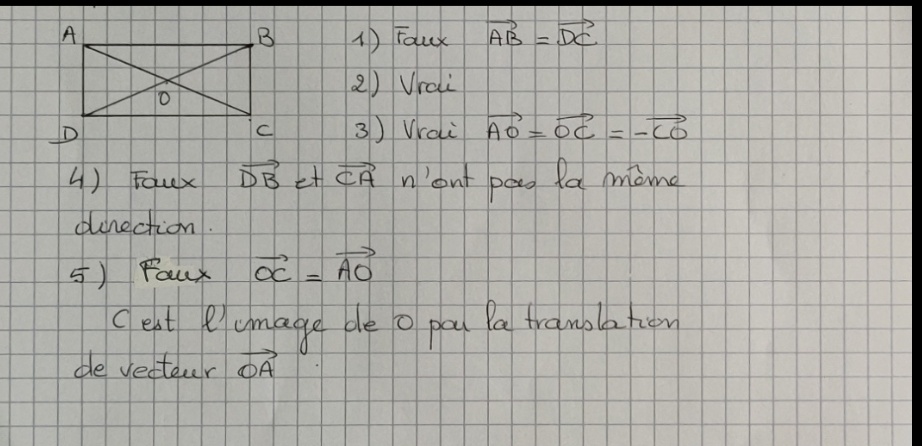 A B 1) Faux $\overrightarrow{AB} = \overrightarrow{DC}$
2) Vrai
O
D C 3) Vrai $\overrightarrow{AO} = \overrightarrow{OC} = -\overrightarrow{CO}$
4) Faux $\overrightarrow{DB}$ et $\overrightarrow{CA}$ n'ont pas la même
direction.
5) Faux $\overrightarrow{OC} = \overrightarrow{AO}$
C est l'image de O par la translation
de vecteur $\overrightarrow{OA}$